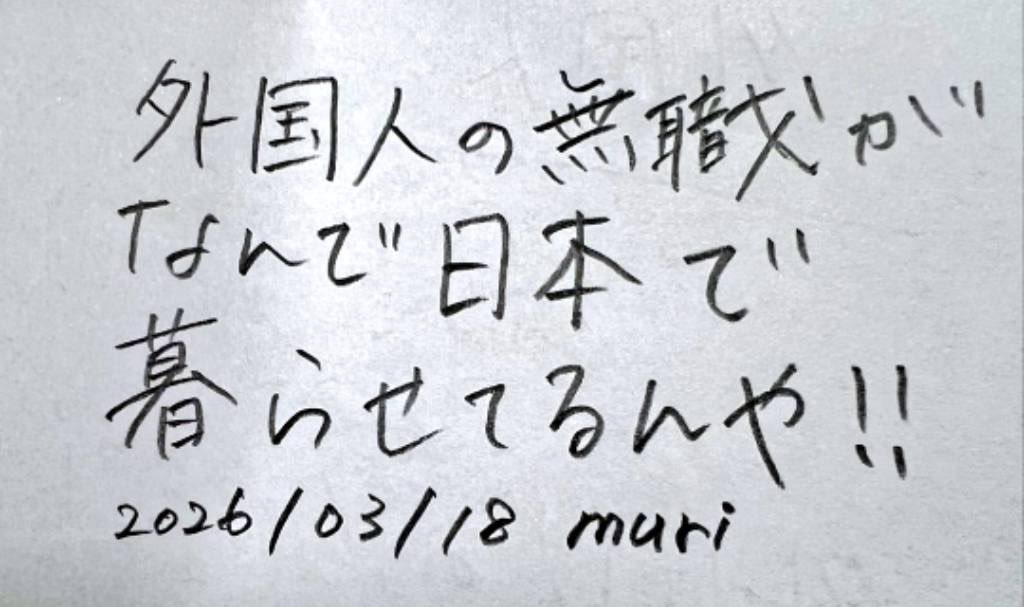 外国人の無職が
なんで日本で
暮らせてるんや!!
2026/03/18 muri